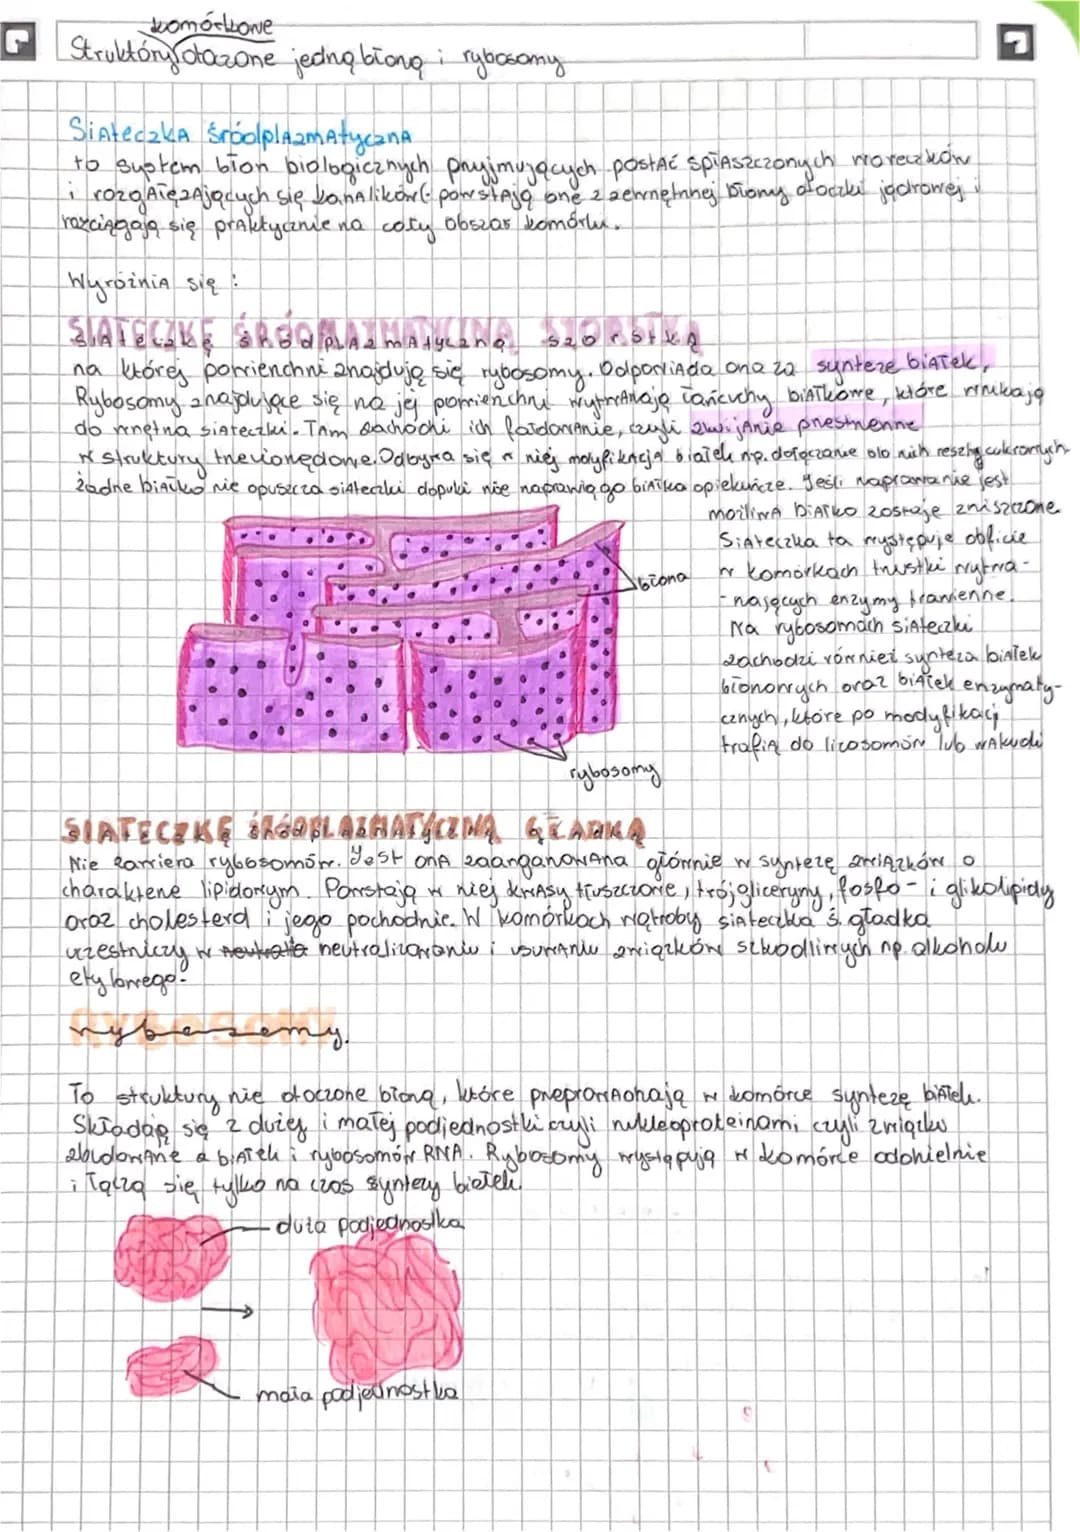 komórkowe
Struktóry otoczone jedną błoną i rybosomy
SiAteczkA śródplAzmAtycznA
to system błon biologicznych przyjmujących postAć spłAszczonych woreczków
i rozgAłęzAjących się kanAlików: powstAją one z zewnętrznej błony otoczki jądrowej i
rozciągają się prAktycznie na cały obszar komórki.
WyróżniA się :
SIATECZKĘ ŚRÓDPLAZMATYCZNĄ SZORSTKĄ
na której powierzchni znajdują się rybosomy. OdpowiAda ona za syntezę biAłek,
Rybosomy znajdujące się na jej powierzchni wytwArzają łańcuchy biAłkowe, które wnikają
do wnętrza siAteczki. TAm zachodzi ich fałdowAnie, czyli zwijAnie przestrzenne
w struktury trzeciorzędowe. Odbywa się w niej modyfikacjA białek np. dołączanie do nich reszty cukrowych
żadne biAłko nie opuszcza siAteczki dopuki nie naprawią go biAłka opiekuńcze. Jeśli naprawianie jest
możliwA biAłko zostaje zniszczone
SiAteczka ta występuje obficie
w komórkach trzustki wytwa-
-rzających enzymy trawienne.
Na rybosomach siAteczki
zachodzi również synteza biAłek
błonowych oraz biAłek enzymaty-
cznych, które po modyfikacji
trafią do lizosomów lub wAkuoli
błona
rybosomy
SIATECZKĘ ŚRÓDPLAZMATYCZNĄ GŁADKĄ
Nie zawiera rybosomów. Jest onA zaangażowAna głównie w syntezę zwiAzków o
charakterze lipidowym. Powstają w niej kwAsy tłuszczowe, trójgliceryny, fosfo- i glikolipidy
oraz cholesterol i jego pochodnie. W komórkach wątroby siAteczka ś. gładka
uczestniczy w neutralizowaniu i usuwAniu zwiążków szkodliwych np. alkoholu
etylowego.
rybosomy.
To struktury nie otoczone błoną, które przeprowAdzają w komórce syntezę biAłek.
SkłAdają się z dużej i małej podjednostki czyli nukleoproteinami czyli związku
zbudowAne z biAłek i rybosomów RNA. Rybosomy występują w komórce oddzielnie
i łączą się tylko na czas syntezy białek.
duża podjednostka
mała podjednostka